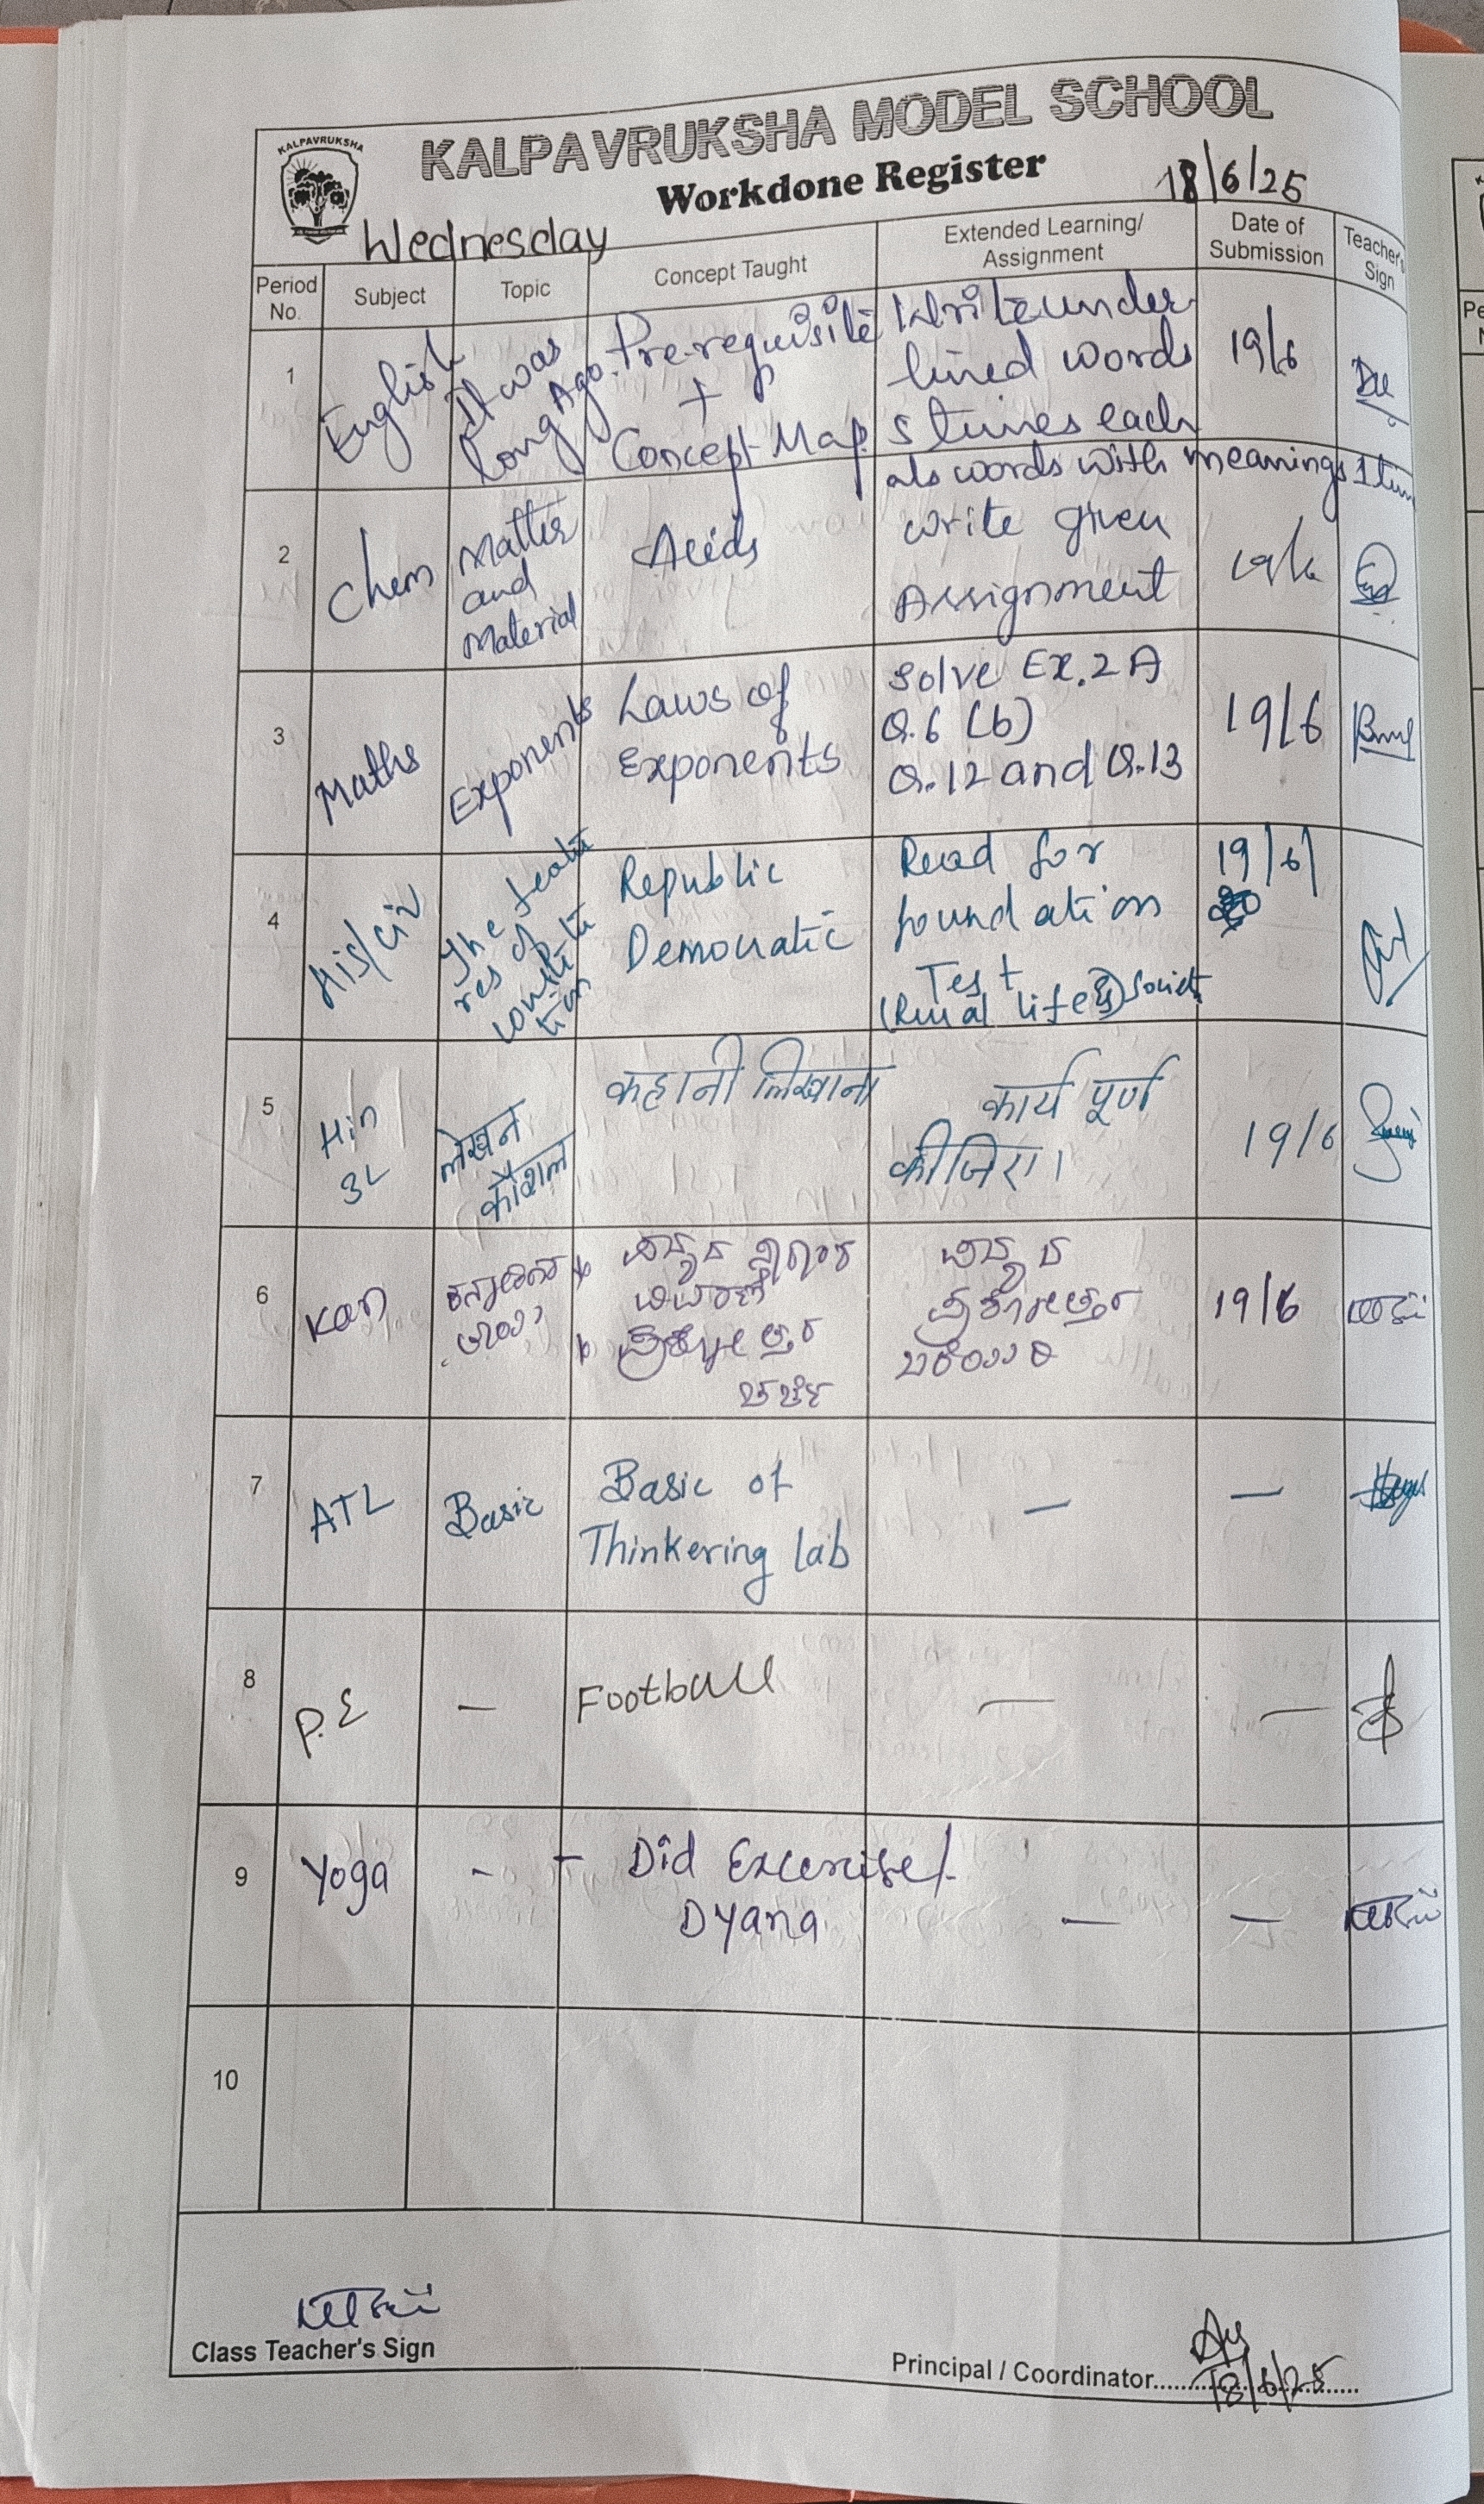 KALPAVRUKSHA
KALPAVRUKSHA MODEL SCHOOL
Workdone Register
18/6/25
Wednesday
Period No. Subject Topic Concept Taught Extended Learning/ Assignment Date of Submission Teacher's Sign
1 English It was Long Ago. Pre-requisite + Concept Map. Write under lined words 5 times each 19/6
als words with meanings 1 tim
2 Chem Matter and Material Acids write given Assignment 19/6
3 Maths Exponents Laws of Exponents Solve Ex. 2 A Q.6 (b) Q.12 and Q.13 19/6
4 His/civ The featu res of constitu tion Republic Democratic Read for foundation Test (Rural life & Societ 19/6
5 Hin 3L लेखन कौशल कहानी लिखाना कार्य पूर्ण कीजिए। 19/6
6 Kan ಪ್ರಶ್ನೋತ್ತರ ಚರ್ಚೆ ಪ್ರಶ್ನೋತ್ತರ ಬರೆಯಿರಿ 19/6
7 ATL Basic Basic of Thinkering lab — —
8 P.E — Football — —
9 Yoga - - Did Excercise/ Dyana — —
10
Class Teacher's Sign
Principal / Coordinator.......... 18/6/25